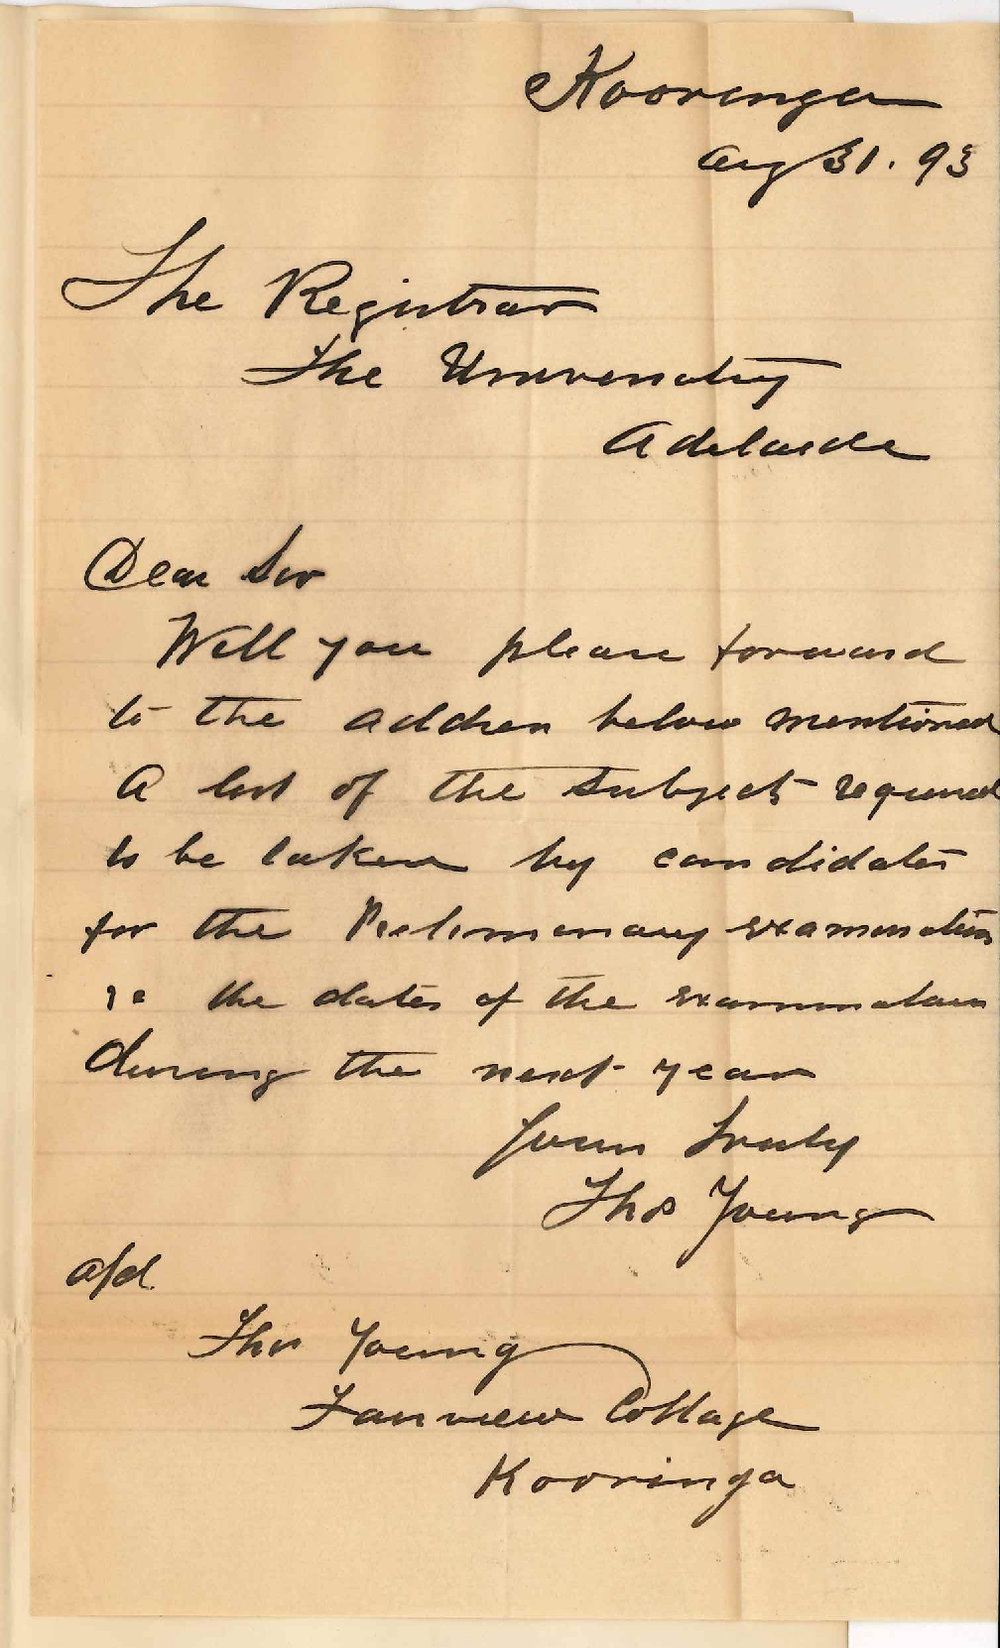 Kooringa
Aug 31. 93
The Registrar
The University
Adelaide
Dear Sir
Will you please forward
to the address below mentioned
A list of the subjects required
to be taken by candidates
for the Preliminary examination
re the dates of the examination
during the next year
Yours truly
Thos Young
a/d
Thos Young
Fairview Cottage
Kooringa